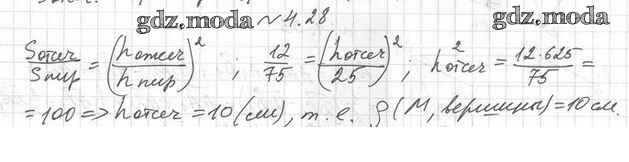 gdz.moda №4.28 gdz.moda
Sотсеч/Sпир = (hотсеч/hпир)² ; 12/75 = (hотсеч/25)² ; h²отсеч = 12·625/75 =
= 100 => hотсеч = 10 (см), т.е. ρ(М, вершины) = 10 см.